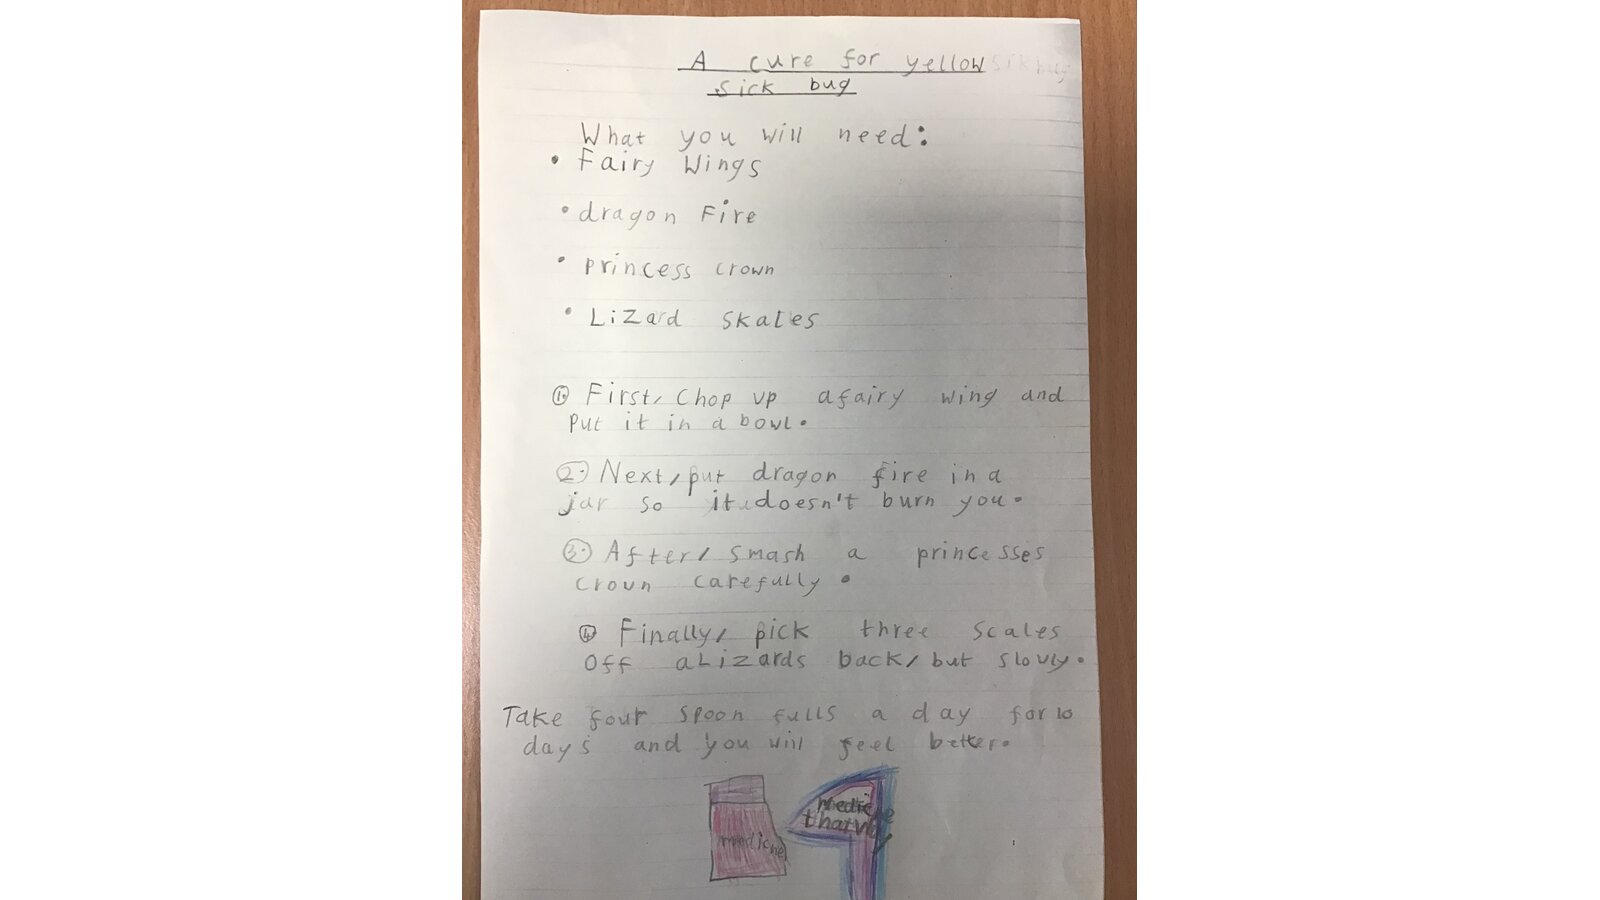 A cure for yellow
sick bug
What you will need:
• Fairy Wings
• dragon Fire
• princess crown
• Lizard skales
1. First, Chop up a fairy wing and
put it in a bowl.
2. Next, put dragon fire in a
jar so it doesn't burn you.
3. After, smash a princesses
croun carefully.
4. Finally, pick three scales
off a Lizards back, but slowly.
Take four spoon fulls a day for 10
days and you will feel better.
medicine
medicine
that way